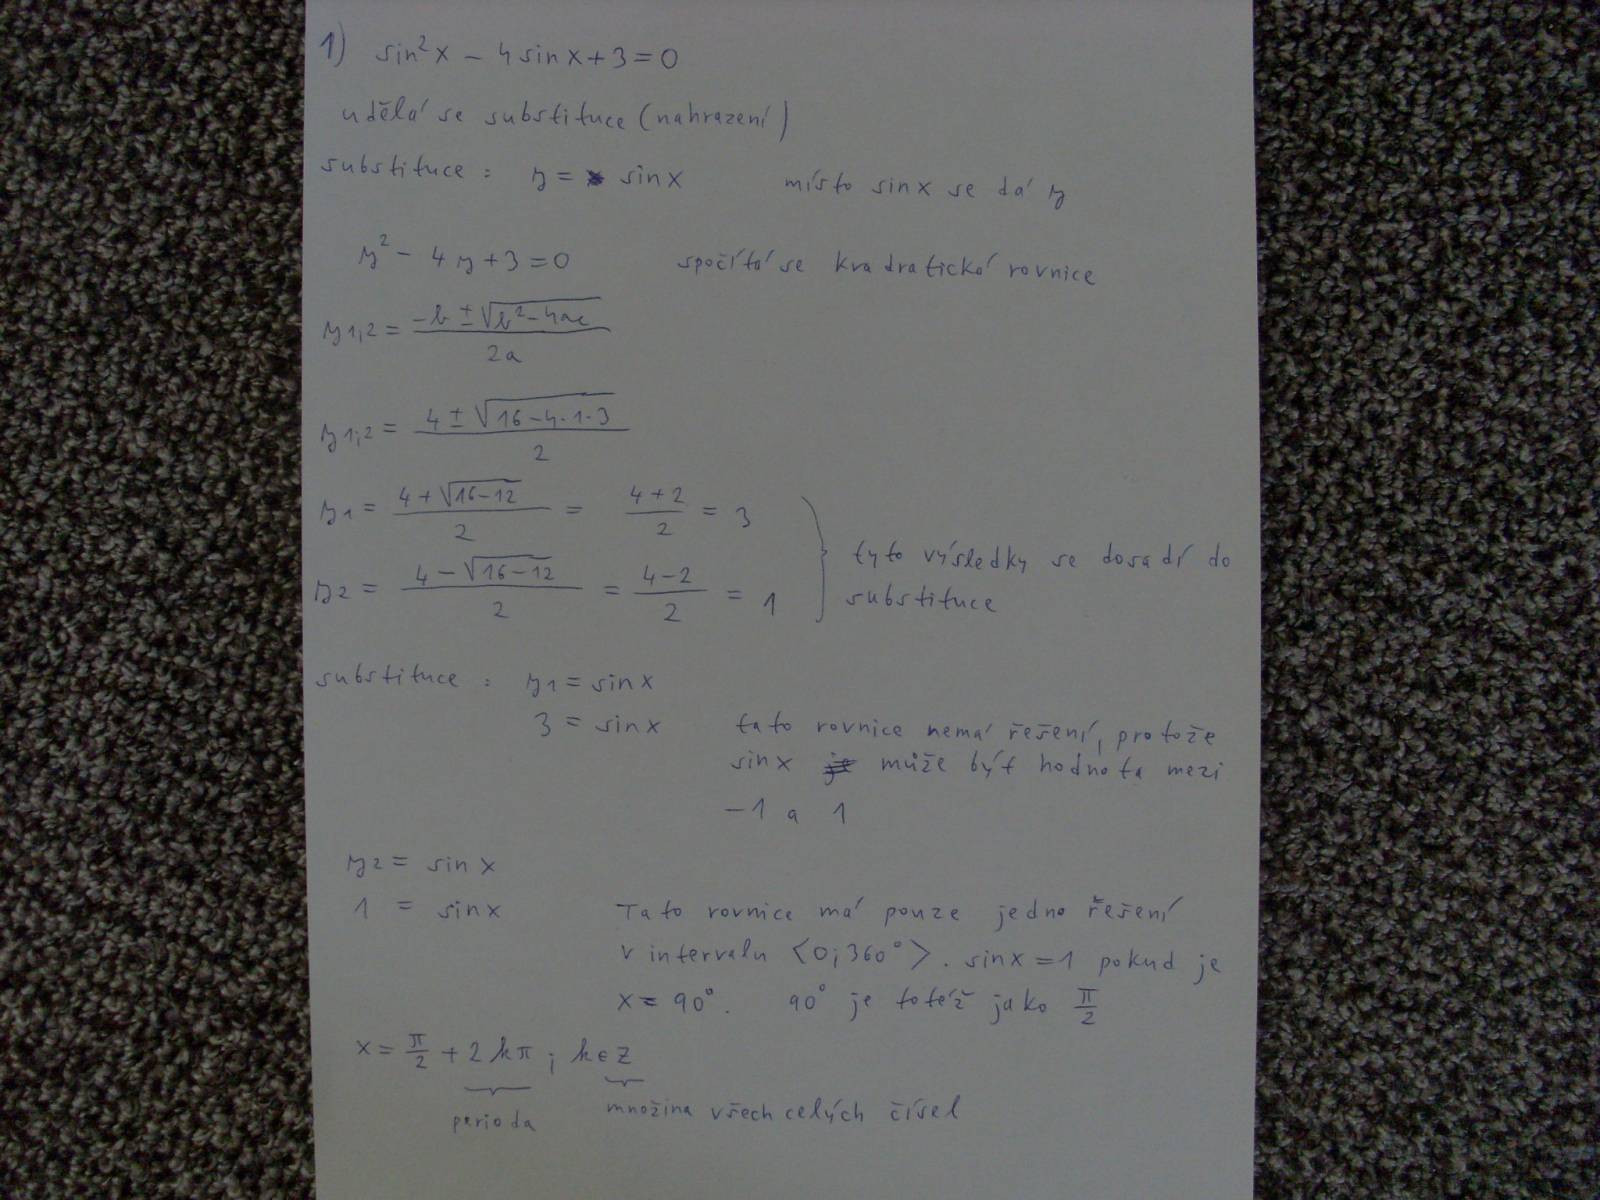 1) sin²x - 4 sin x + 3 = 0
udělá se substituce (nahrazení)
substituce : y = sin x místo sin x se dá y
y² - 4y + 3 = 0 spočítá se kvadratická rovnice
y1,2 = (-b ± √(b² - 4ac)) / 2a
y1,2 = (4 ± √(16 - 4·1·3)) / 2
y1 = (4 + √(16 - 12)) / 2 = (4 + 2) / 2 = 3
y2 = (4 - √(16 - 12)) / 2 = (4 - 2) / 2 = 1
tyto výsledky se dosadí do
substituce
substituce : y1 = sin x
3 = sin x tato rovnice nemá řešení, protože
sin x může být hodnota mezi
-1 a 1
y2 = sin x
1 = sin x Tato rovnice má pouze jedno řešení
v intervalu <0;360°>. sin x = 1 pokud je
x = 90°. 90° je totéž jako π/2
x = π/2 + 2kπ ; k ∈ Z
perioda množina všech celých čísel